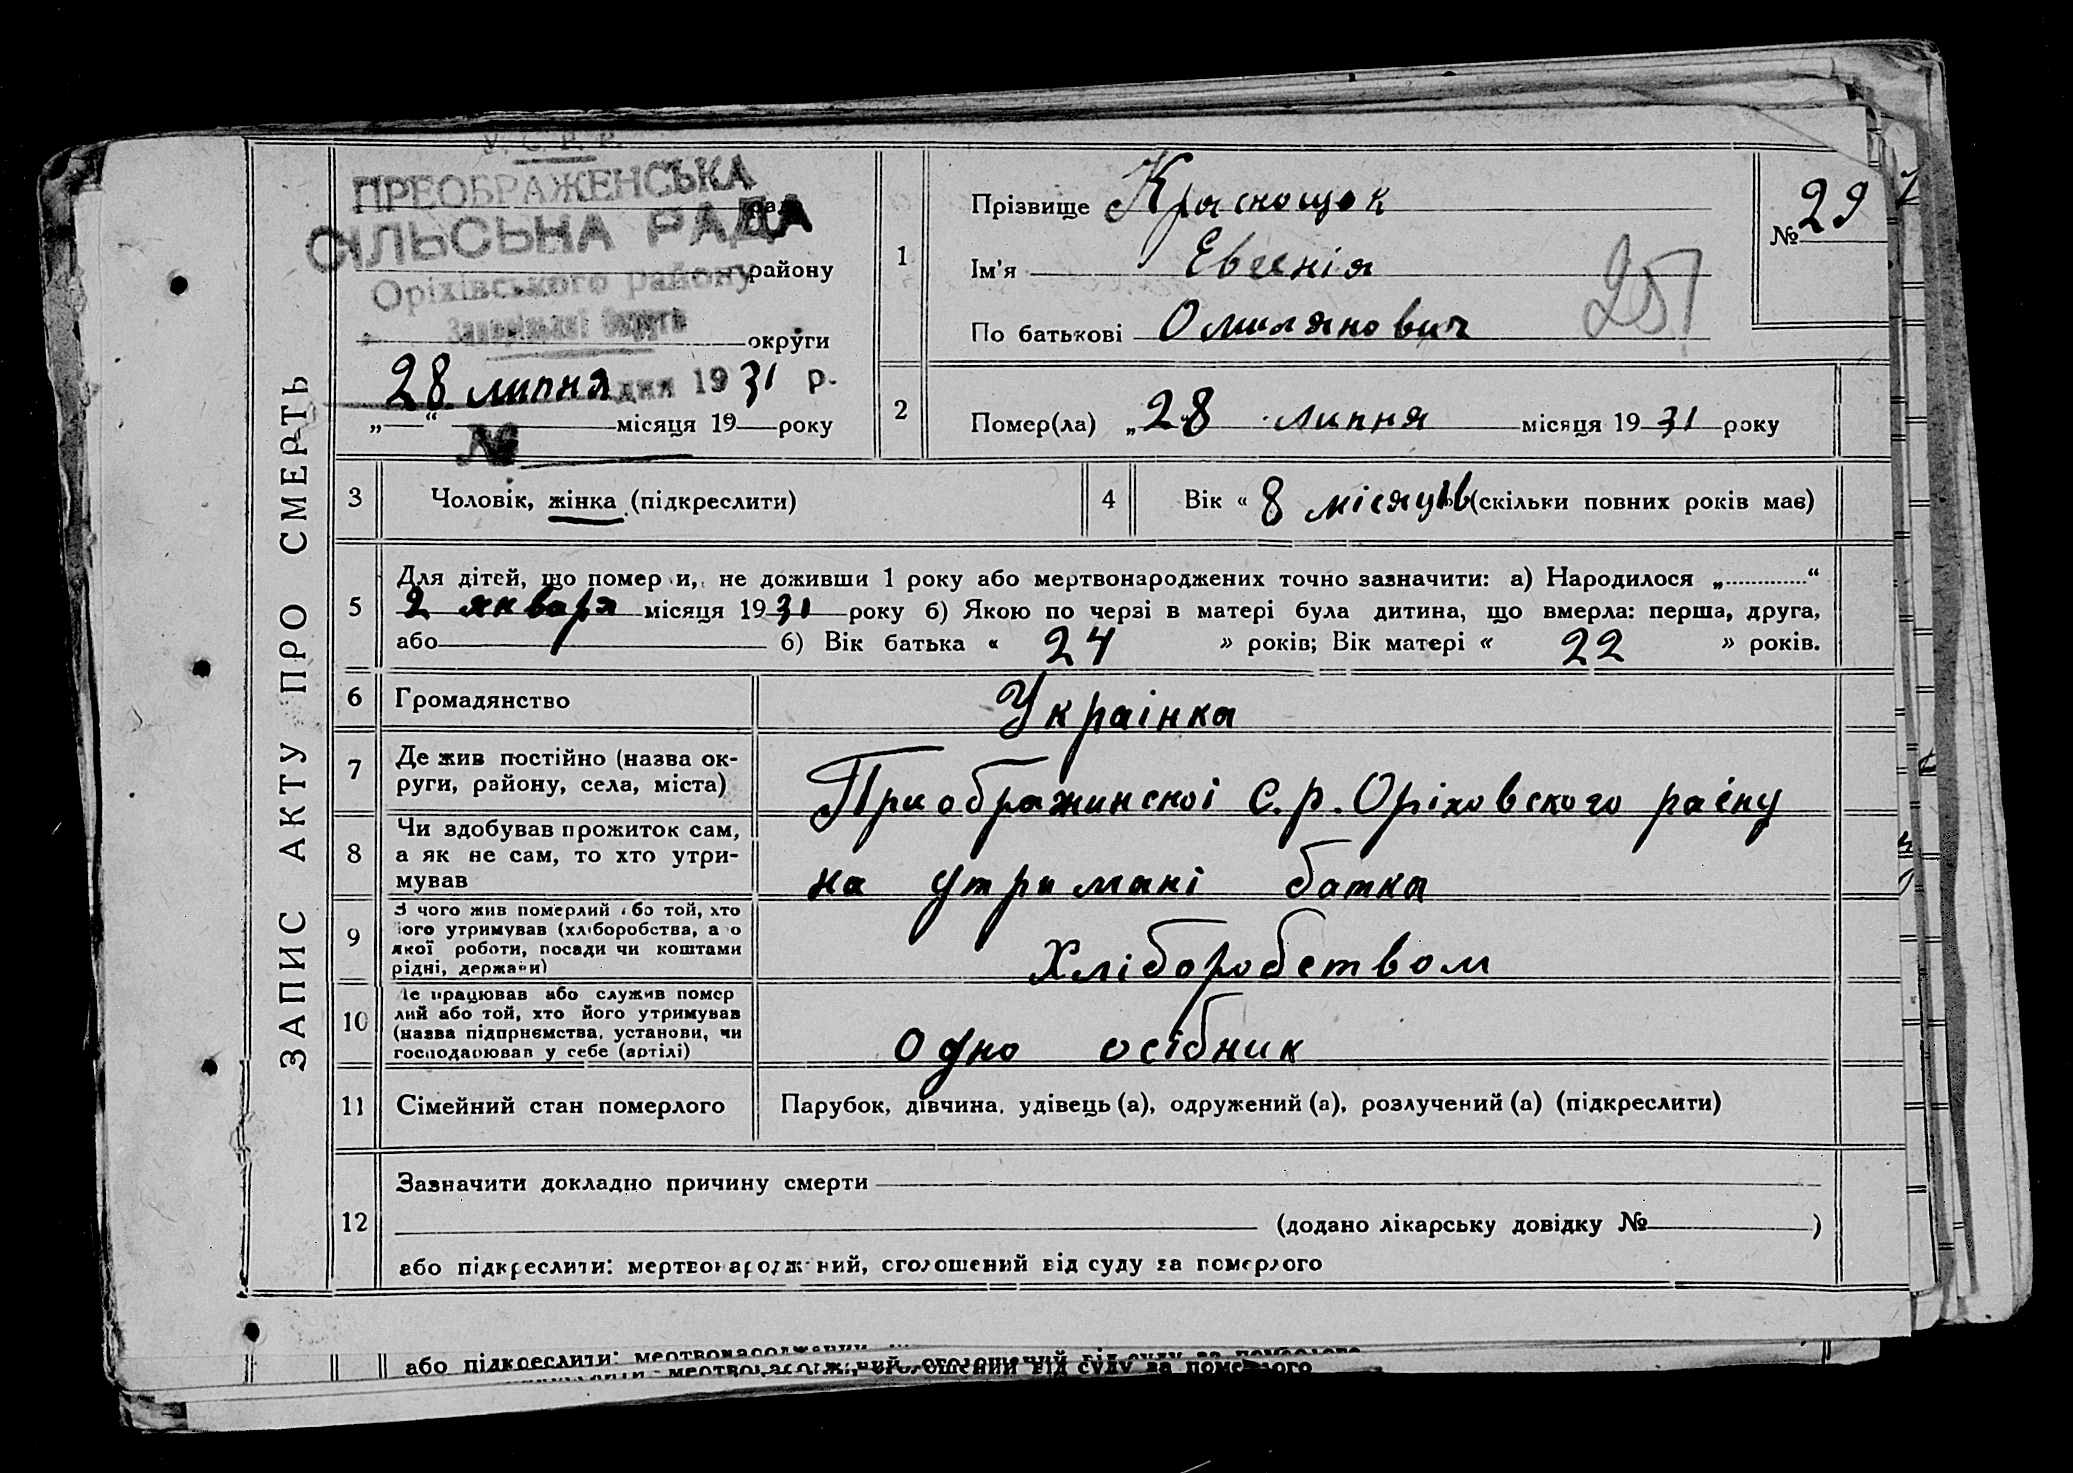 У. С. Р. Р.
ПРЕОБРАЖЕНСЬКА
СІЛЬСЬКА РАДА
району
Оріхівського району
Округи
округи
28 липня дня 1931 р.
„—“ місяця 19 року
№
ЗАПИС АКТУ ПРО СМЕРТЬ
1
Прізвище Краснощок
Ім'я Евгенія
По батькові Омилянович
№ 29
251
2
Помер(ла) „28 липня місяця 1931 року
3 Чоловік, жінка (підкреслити)
4 Вік « 8 місяців (скільки повних років має)
5
Для дітей, що померли, не доживши 1 року або мертвонароджених точно зазначити: а) Народилося „ “
2 января місяця 1931 року б) Якою по черзі в матері була дитина, що вмерла: перша, друга,
або б) Вік батька « 24 » років; Вік матері « 22 » років.
6 Громадянство Украінка
7 Де жив постійно (назва ок-
руги, району, села, міста) Приображинскоі с.р. Оріховского раёну
8 Чи здобував прожиток сам,
а як не сам, то хто утри-
мував на утримані батка
9 З чого жив померлий або той, хто
його утримував (хліборобства, або
якої роботи, посади чи коштами
рідні, держави) Хліборобством
10 Де працював або служив помер
лий або той, хто його утримував
(назва підприємства, установи, чи
господарював у себе (артілі) Одно осібник
11 Сімейний стан померлого Парубок, дівчина, удівець (а), одружений (а), розлучений (а) (підкреслити)
12 Зазначити докладно причину смерти
(додано лікарську довідку № )
або підкреслити: мертвонароджений, оголошений від суду за померлого
або підкреслити: мертвонароджений,
від суду за померлого